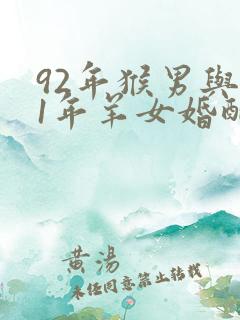 92年猴男與
1年羊女婚配
黄湯
未经同意禁止转载